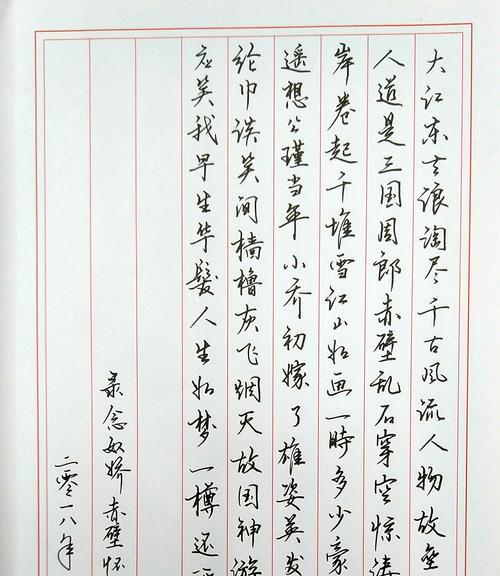 大江东去浪淘尽千古风流人物故垒
人道是三国周郎赤壁乱石穿空惊涛
岸卷起千堆雪江山如画一时多少豪
遥想公瑾当年小乔初嫁了雄姿英发
纶巾谈笑间樯橹灰飞烟灭故国神游
应笑我早生华髮人生如梦一樽还
录念奴娇赤壁怀
二零一八年